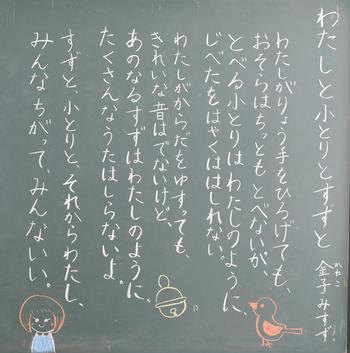 わたしと小とりとすずと
金子みすず
かねこ
わたしがりょう手をひろげても、
おそらはちっともとべないが、
とべる小とりはわたしのように、
じべたをはやくははしれない。
わたしがからだをゆすっても、
きれいな音はでないけど、
あのなるすずはわたしのように、
たくさんなうたはしらないよ。
すずと、小とりと、それからわたし、
みんなちがって、みんないい。